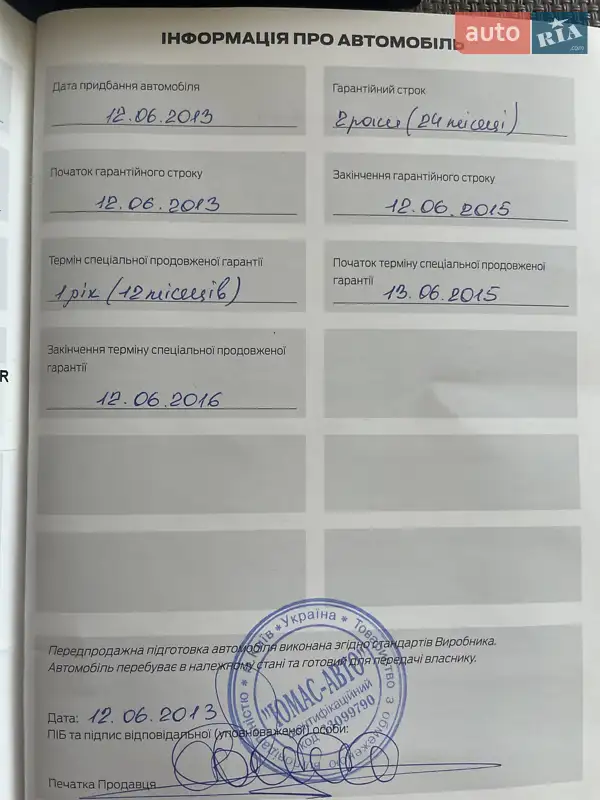 auto RIA .com
ІНФОРМАЦІЯ ПРО АВТОМОБІЛЬ
Дата придбання автомобіля
12.06.2013
Гарантійний строк
2 роки (24 місяці)
Початок гарантійного строку
12.06.2013
Закінчення гарантійного строку
12.06.2015
Термін спеціальної продовженої гарантії
1 рік (12 місяців)
Початок терміну спеціальної продовженої
гарантії
13.06.2015
Закінчення терміну спеціальної продовженої
гарантії
12.06.2016
R
Передпродажна підготовка автомобіля виконана згідно стандартів Виробника.
Автомобіль перебуває в належному стані та готовий для передачі власнику.
Дата: 12.06.2013
ПІБ та підпис відповідальної (уповноваженої) особи:
Печатка Продавця
* м. Київ * Україна * Товариство з обмеженою відповідальністю
"ЮМАС-АВТО"
Ідентифікаційний
код